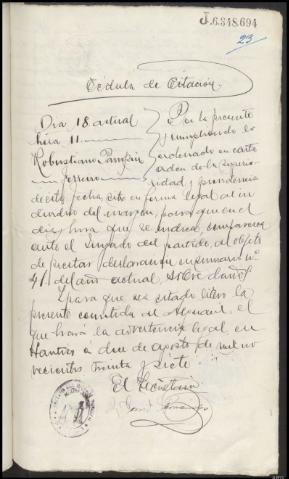 J.6.348.694
23
Cédula de Citación
Día 18 actual
hora 11
Robustiano Pampín
Ferreiro
Por la presente
y cumpliendo lo
ordenado en carta
orden de la superio-
ridad y providencia
de esta fecha, cito en forma legal al in-
dividuo del margen, para que en el
día y hora que se indica, comparezca
ante el Juzgado del partido, al objeto
de prestar declaración en sumario nº
41 del año actual, sobre daños
Y para que sea citado libro la
presente cometida al Alguacil, el
que hará la advertencia legal, en
a doce de agosto de mil no-
vecientos treinta y siete
El Secretario